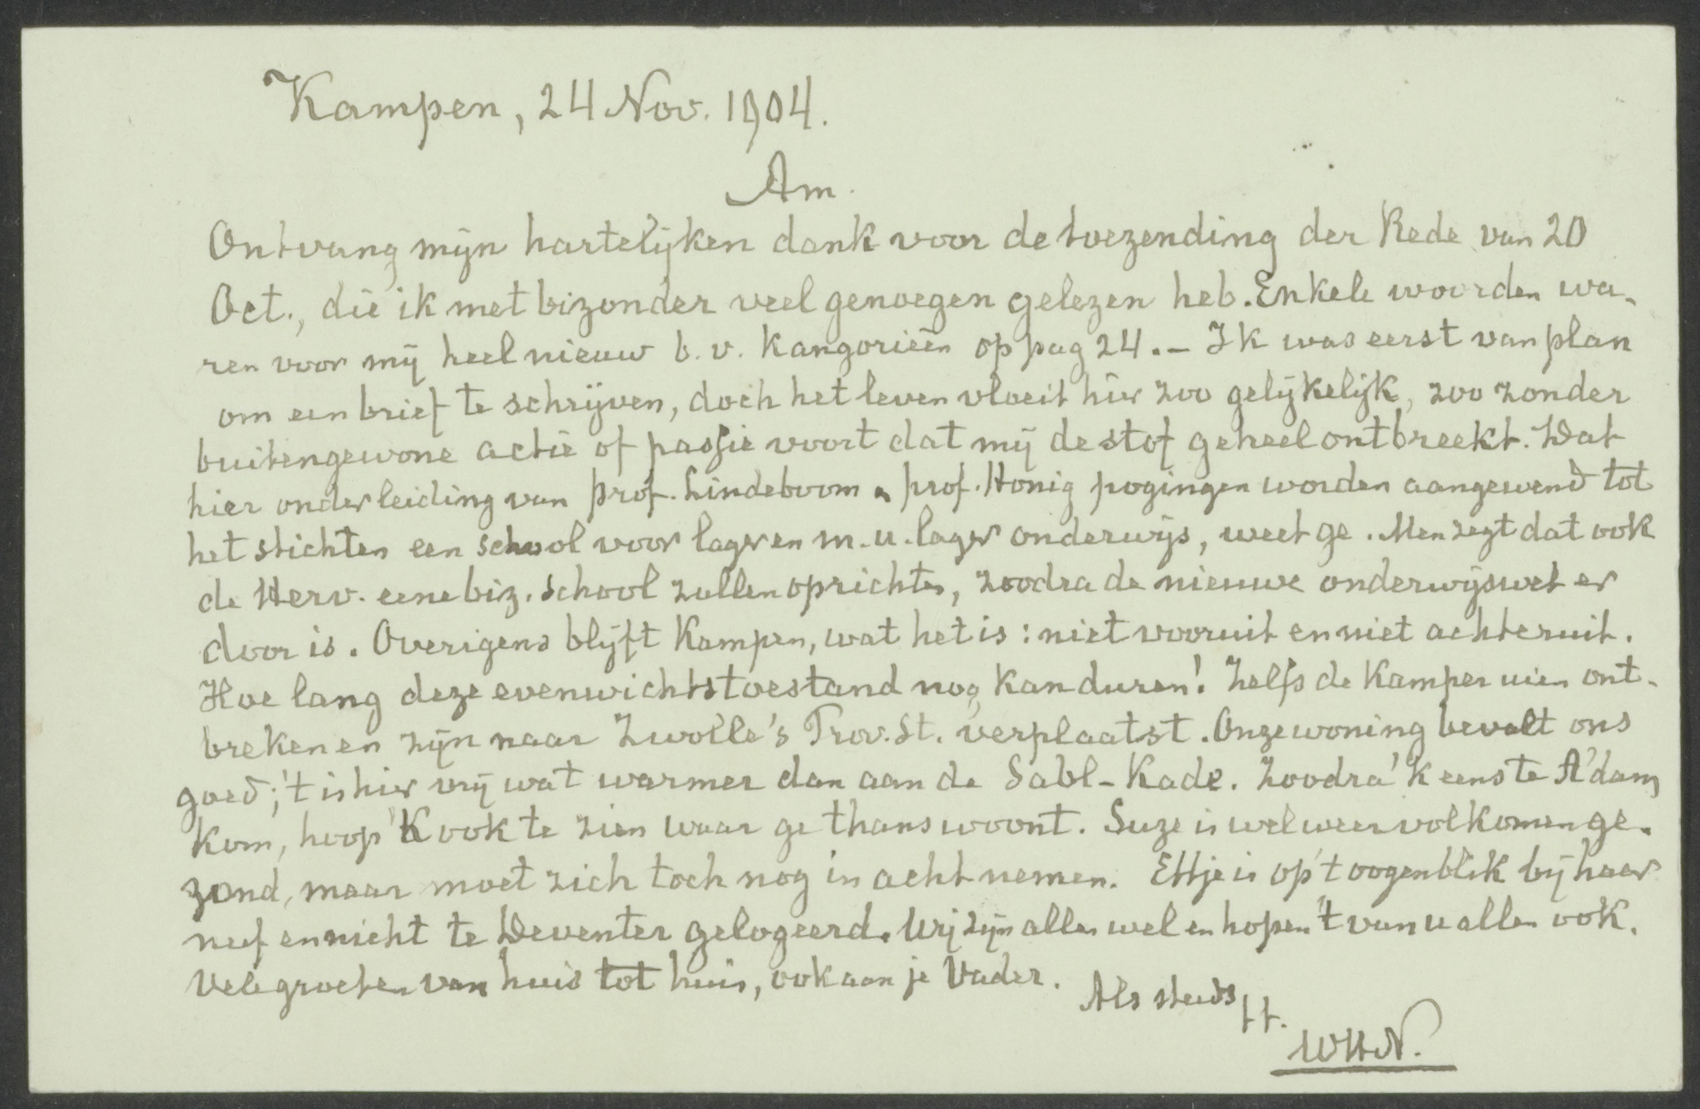 Kampen, 24 Nov. 1904.
Am.
Ontvang mijn hartelijken dank voor de toezending der Rede van 20
Oct., die ik met bizonder veel genoegen gelezen heb. Enkele woorden wa-
ren voor mij heel nieuw b.v. Kangorieën op pag 24. – Ik was eerst van plan
om een brief te schrijven, doch het leven vloeit hier zoo gelijkelijk, zoo zonder
buitengewone actie of passie voort dat mij de stof geheel ontbreekt. Dat
hier onder leiding van prof. Lindeboom & prof. Honig pogingen worden aangewend tot
het stichten een school voor lager en m.u. lager onderwijs, weet ge. Men zegt dat ook
de Herv. eene biz. school zullen oprichten, zoodra de nieuwe onderwijswet er
door is. Overigens blijft Kampen, wat het is: niet vooruit en niet achteruit.
Hoe lang deze evenwichtstoestand nog kan duren! Zelfs de Kamper uien ont-
breken en zijn naar Zwolle's Prov. St. verplaatst. Onze woning bevalt ons
goed; 't is hier vrij wat warmer dan aan de Sabl-Kade. Zoodra 'k eens te A'dam
kom, hoop 'k ook te zien waar ge thans woont. Suze is wel weer volkomen ge-
zond, maar moet zich toch nog in acht nemen. Ettje is op 't oogenblik bij haar
neef en nicht te Deventer gelogeerd. Wij zijn allen wel en hopen 't van u allen ook.
Vele groeten van huis tot huis, ook aan je Vader.
Als steeds
t.t.
WHN.